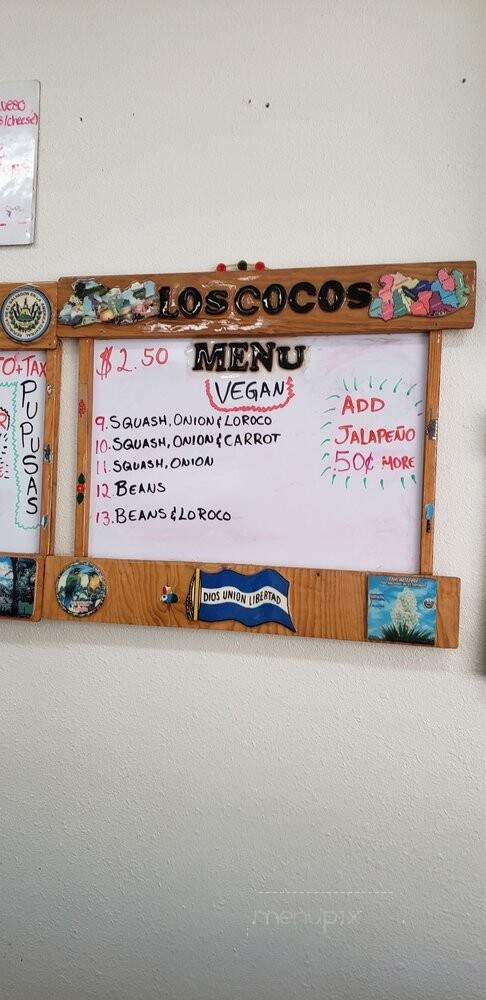 ueso
s/cheese)
LOS COCOS
O+TAX
PUPUSAS
$2.50
MENU
VEGAN
9. SQUASH, ONION & LOROCO
10. SQUASH, ONION & CARROT
11. SQUASH, ONION
12. BEANS
13. BEANS & LOROCO
ADD
JALAPEÑO
.50¢ MORE
DIOS UNION LIBERTAD
menupix